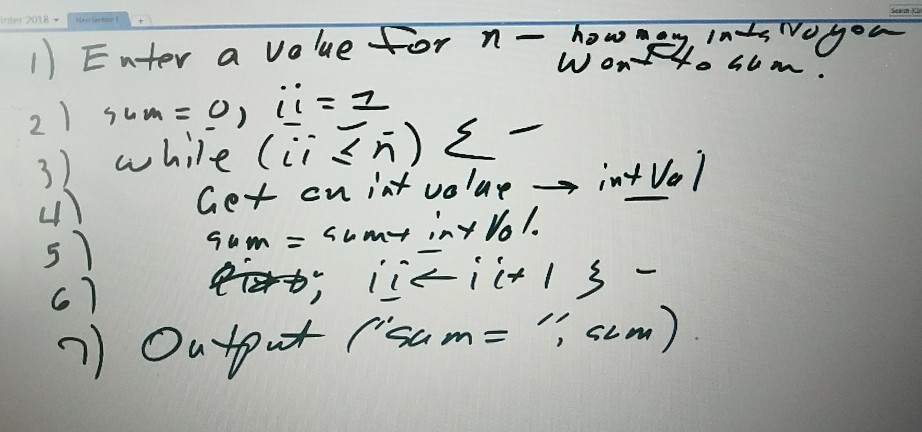 inter 2018
New Section 1
+
1) Enter a value for n - how many ints do you
want to sum.
2) sum = 0, ii = 1
3) while (ii ≤ n) {
4) Get an int value → intVal
5) sum = sum + intVal.
6) ii ← ii + 1 }
7) Output ("sum = ", sum).